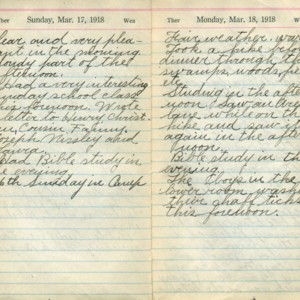 Sunday, Mar. 17, 1918 Wea
Clear and very plea-
ant in the morning
Cloudy part of the
afternoon.
Had a very interesting
Sunday school lesson
this forenoon. Wrote
letter to Henry Christ-
Cousin, Fanny,
Joseph Nissley and
Had Bible study in
the evening.
6th Sunday in Camp
Ther Monday, Mar. 18, 1918 Wea
Fair weather, warm
Took a hike before
dinner through the
swamps, woods, pi
etc.
Studing in the after
noon I saw an aero
lane while on the
hike and saw it
again in the after
noon.
Bible study in the
evening.
The Boys in the
lower room, wash
their shaff ticks
this forenoon.